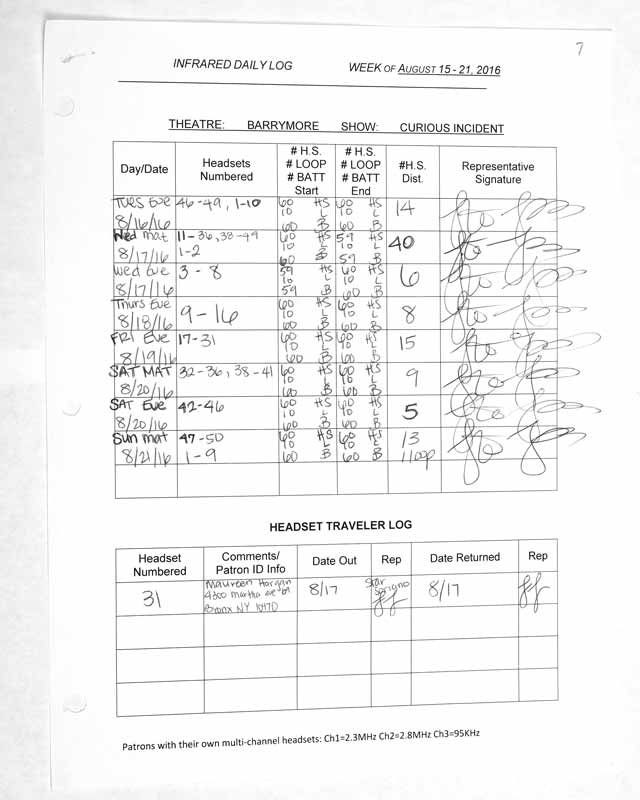 7
INFRARED DAILY LOG WEEK OF AUGUST 15 - 21, 2016
THEATRE: BARRYMORE SHOW: CURIOUS INCIDENT
Day/Date Headsets Numbered # H.S. # LOOP # BATT Start # H.S. # LOOP # BATT End #H.S. Dist. Representative Signature
Tues Eve 8/16/16 46-49, 1-10 60 HS 10 L 60 B 60 HS 10 L 60 B 14
Wed mat 8/17/16 11-36, 38-49 1-2 60 HS 10 L 60 B 59 HS 10 L 59 B 40
Wed Eve 8/17/16 3-8 59 HS 10 L 59 B 60 HS 10 L 60 B 6
Thurs Eve 8/18/16 9-16 60 HS 10 L 60 B 60 HS 10 L 60 B 8
FRI Eve 8/19/16 17-31 60 HS 10 L 60 B 60 HS 10 L 60 B 15
SAT MAT 8/20/16 32-36, 38-41 60 HS 10 L 60 B 60 HS 10 L 60 B 9
SAT Eve 8/20/16 42-46 60 HS 10 L 60 B 60 HS 10 L 60 B 5
Sun mat 8/21/16 47-50 1-9 60 HS 10 L 60 B 60 HS 10 L 60 B 13 1 loop
HEADSET TRAVELER LOG
Headset Numbered Comments/ Patron ID Info Date Out Rep Date Returned Rep
31 Maureen Horgan 4300 Martha ave Bronx NY 10470 8/17 Star 8/17
Patrons with their own multi-channel headsets: Ch1=2.3MHz Ch2=2.8MHz Ch3=95KHz